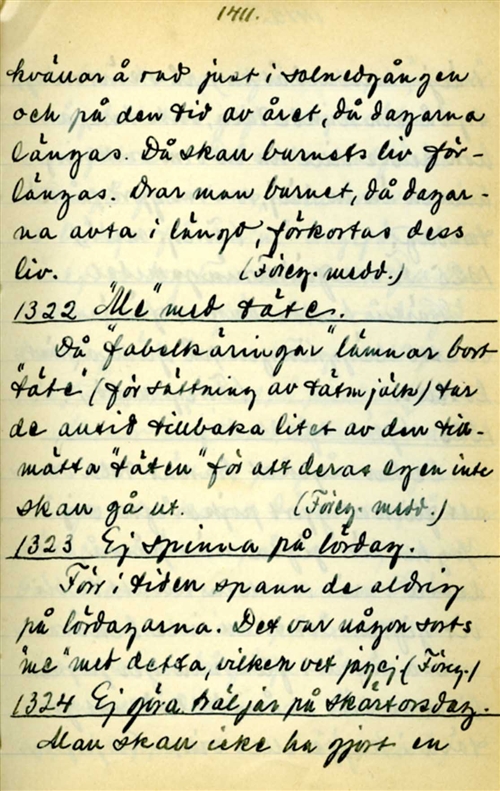 1411.
kvällar å rad just i solnedgången
och på den tid av året, då dagarna
längas. Då skall barnets liv för-
längas. Drar man barnet, då dagar-
na avta i längd, förkortas dess
liv. (Föreg. medd.)
1322 "Me" med täte.
Då "fabelkäringar" lämnar bort
"täte" (för sättning av tätmjölk) tar
de alltid tillbaka litet av den till-
mätta "täten" för att deras egen inte
skall gå ut. (Föreg. medd.)
1323 Ej spinna på lördag.
Förr i tiden spann de aldrig
på lördagarna. Det var någon sorts
"me" med detta, vilken vet jag ej. (Föreg.)
1324 Ej göra häljär på skärtorsdag.
Man skall icke ha gjort en